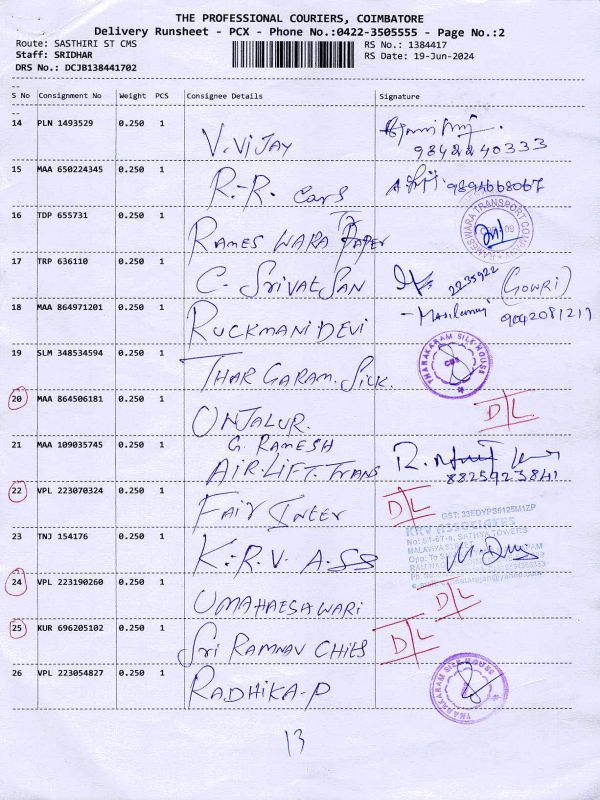 THE PROFESSIONAL COURIERS, COIMBATORE
Delivery Runsheet - PCX - Phone No.:0422-3505555 - Page No.:2
Route: SASTHIRI ST CMS
RS No.: 1384417
Staff: SRIDHAR
RS Date: 19-Jun-2024
DRS No.: DCJB138441702
S No Consignment No Weight PCS Consignee Details Signature
14 PLN 1493529 0.250 1 V. VIJAY 9842240333
15 MAA 650224345 0.250 1 R.-R. Cars 9894668067
16 TDP 655731 0.250 1 RAMES WARA Paper
RAMESWARA TRANSPORT COMPANY
17 TRP 636110 0.250 1 C. SRIVATSAN 2235922 (GOWRI)
18 MAA 864971201 0.250 1 RUCKMANI DEVI 9042081217
19 SLM 348534594 0.250 1 THAR GARAM. SILK.
THARAKARAM SILK HOUSE
20 MAA 864506181 0.250 1 ONJALUR. D/L
21 MAA 109035745 0.250 1 G. RAMESH
AIR.LIFT.TRANS
22 VPL 223070324 0.250 1 FAIR INTER D/L
GST: 33EDYPS5125M1ZP
KRV ASSOCIATES
23 TNJ 154176 0.250 1 K.R.V. ASS
24 VPL 223190260 0.250 1 UMAHAESAWARI D/L
25 KUR 696205102 0.250 1 SRI RAMNAV CHITS D/L
26 VPL 223054827 0.250 1 RADHIKA-P
THARAKARAM SILK HOUSE
13